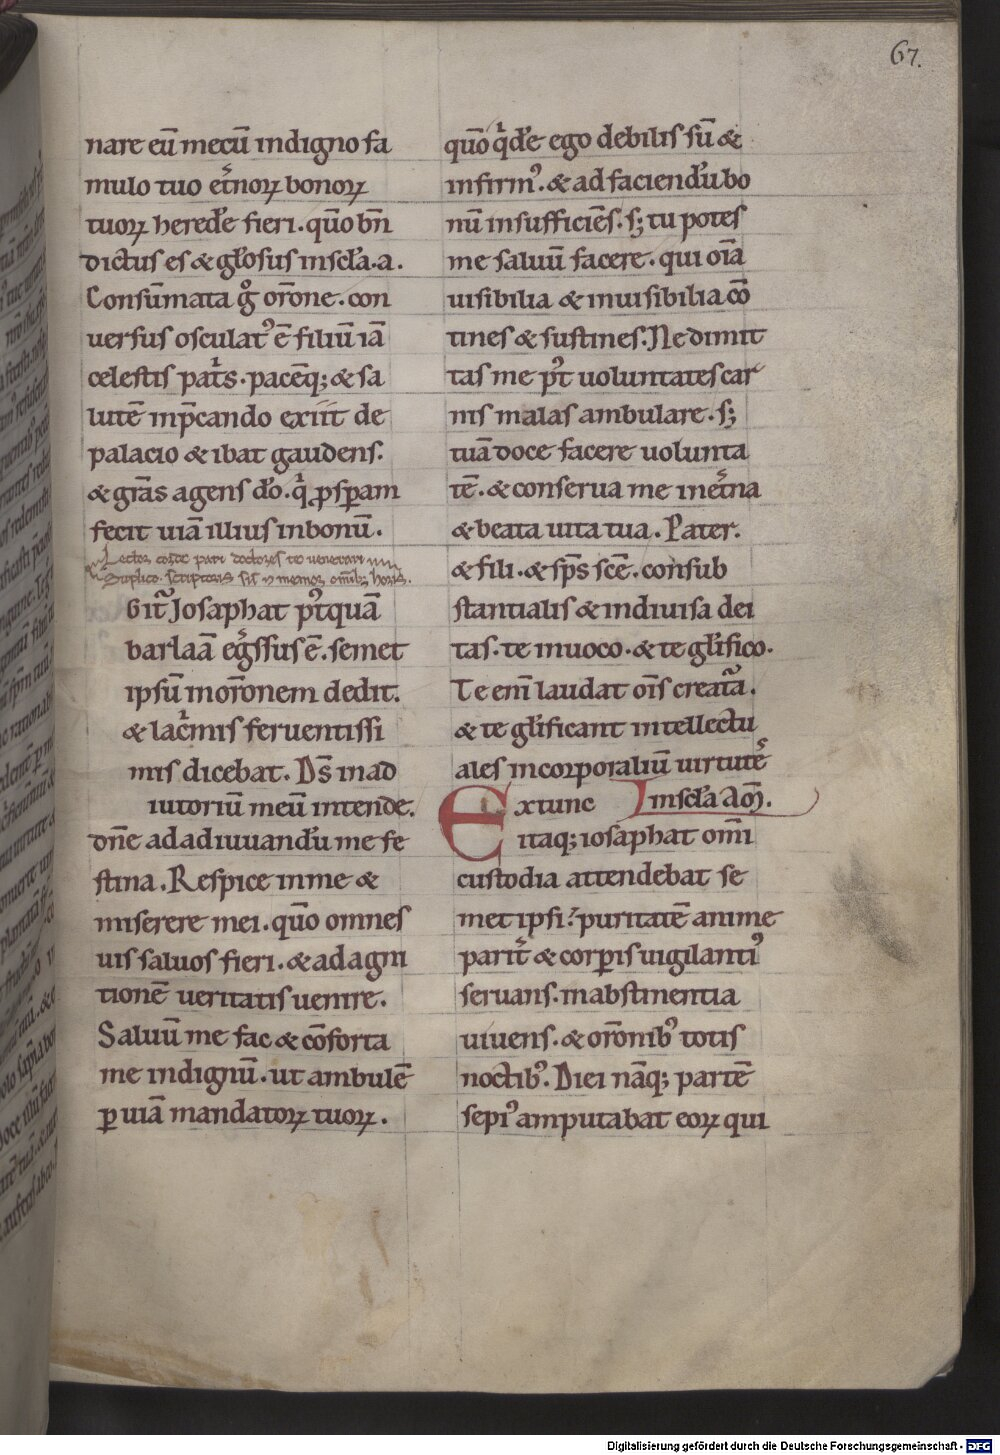 67.
nare eū mecū indigno fa
mulo tuo et̄noꝝ bonoꝝ
tuoꝝ herede fieri. quō bn̄
dictus es & gl̄osus insc̄la. a.
Consūmata g̊ or̄one. con
uersus osculat᷒ ē filiū iā
celestis pat̄s. pacēq; & sa
lutē inp̄cando exiit de
palacio & ibat gaudens.
& grās agens dō. q̄ ꝓsꝑam
fecit uiā illius inbonū.
Lector corde pari doctores te venerari
Supplico. scriptoris sis memor omībȝ horis.
Git᷑ Josaphat pt᷒quā
barlaā eg̃ssus ē. semet
ipsū inor̄onem dedit.
& lac̄mis feruentissi
mis dicebat. Ds̄ inad
iutoriū meū intende.
dn̄e adadiuuandū me fe
stina. Respice inme &
miserere mei. quō omnes
uis saluos fieri. & adagni
tionē ueritatis uenire.
Saluū me fac & cōforta
me indignū. ut ambulē
ꝑ uiā mandatoꝝ tuoꝝ.
quō q̄de ego debilis sū &
infirm᷒. & ad faciendū bo
nū insufficiēs. s; tu potes
me saluū facere. qui oīa
uisibilia & inuisibilia cō
tines & sustines. Ne dimit
tas me p᷒t uoluntates car
nis malas ambulare. s;
tuā doce facere uolunta
tē. & conserua me inet̄na
& beata uita tua. Pater.
& fili. & sp̄s sc̄e. consub
stantialis & indiuisa dei
tas. te inuoco. & te gl̄ifico.
Te eni laudat oīs creat᷑a.
& te gl̄ificant intellectu
ales incorporaliū uirtutē
insc̄la Am̄.
Extunc
itaq; iosaphat omī
custodia attendebat se
met ipsi. puritatē anime
parit̄ & corꝑis uigilanti᷒
seruans. inabstinentia
uiuens. & or̄onib᷒ totis
noctib᷒. Diei nāq; partē
sepi᷒ amputabat eoꝝ qui
Digitalisierung gefördert durch die Deutsche Forschungsgemeinschaft - DFG